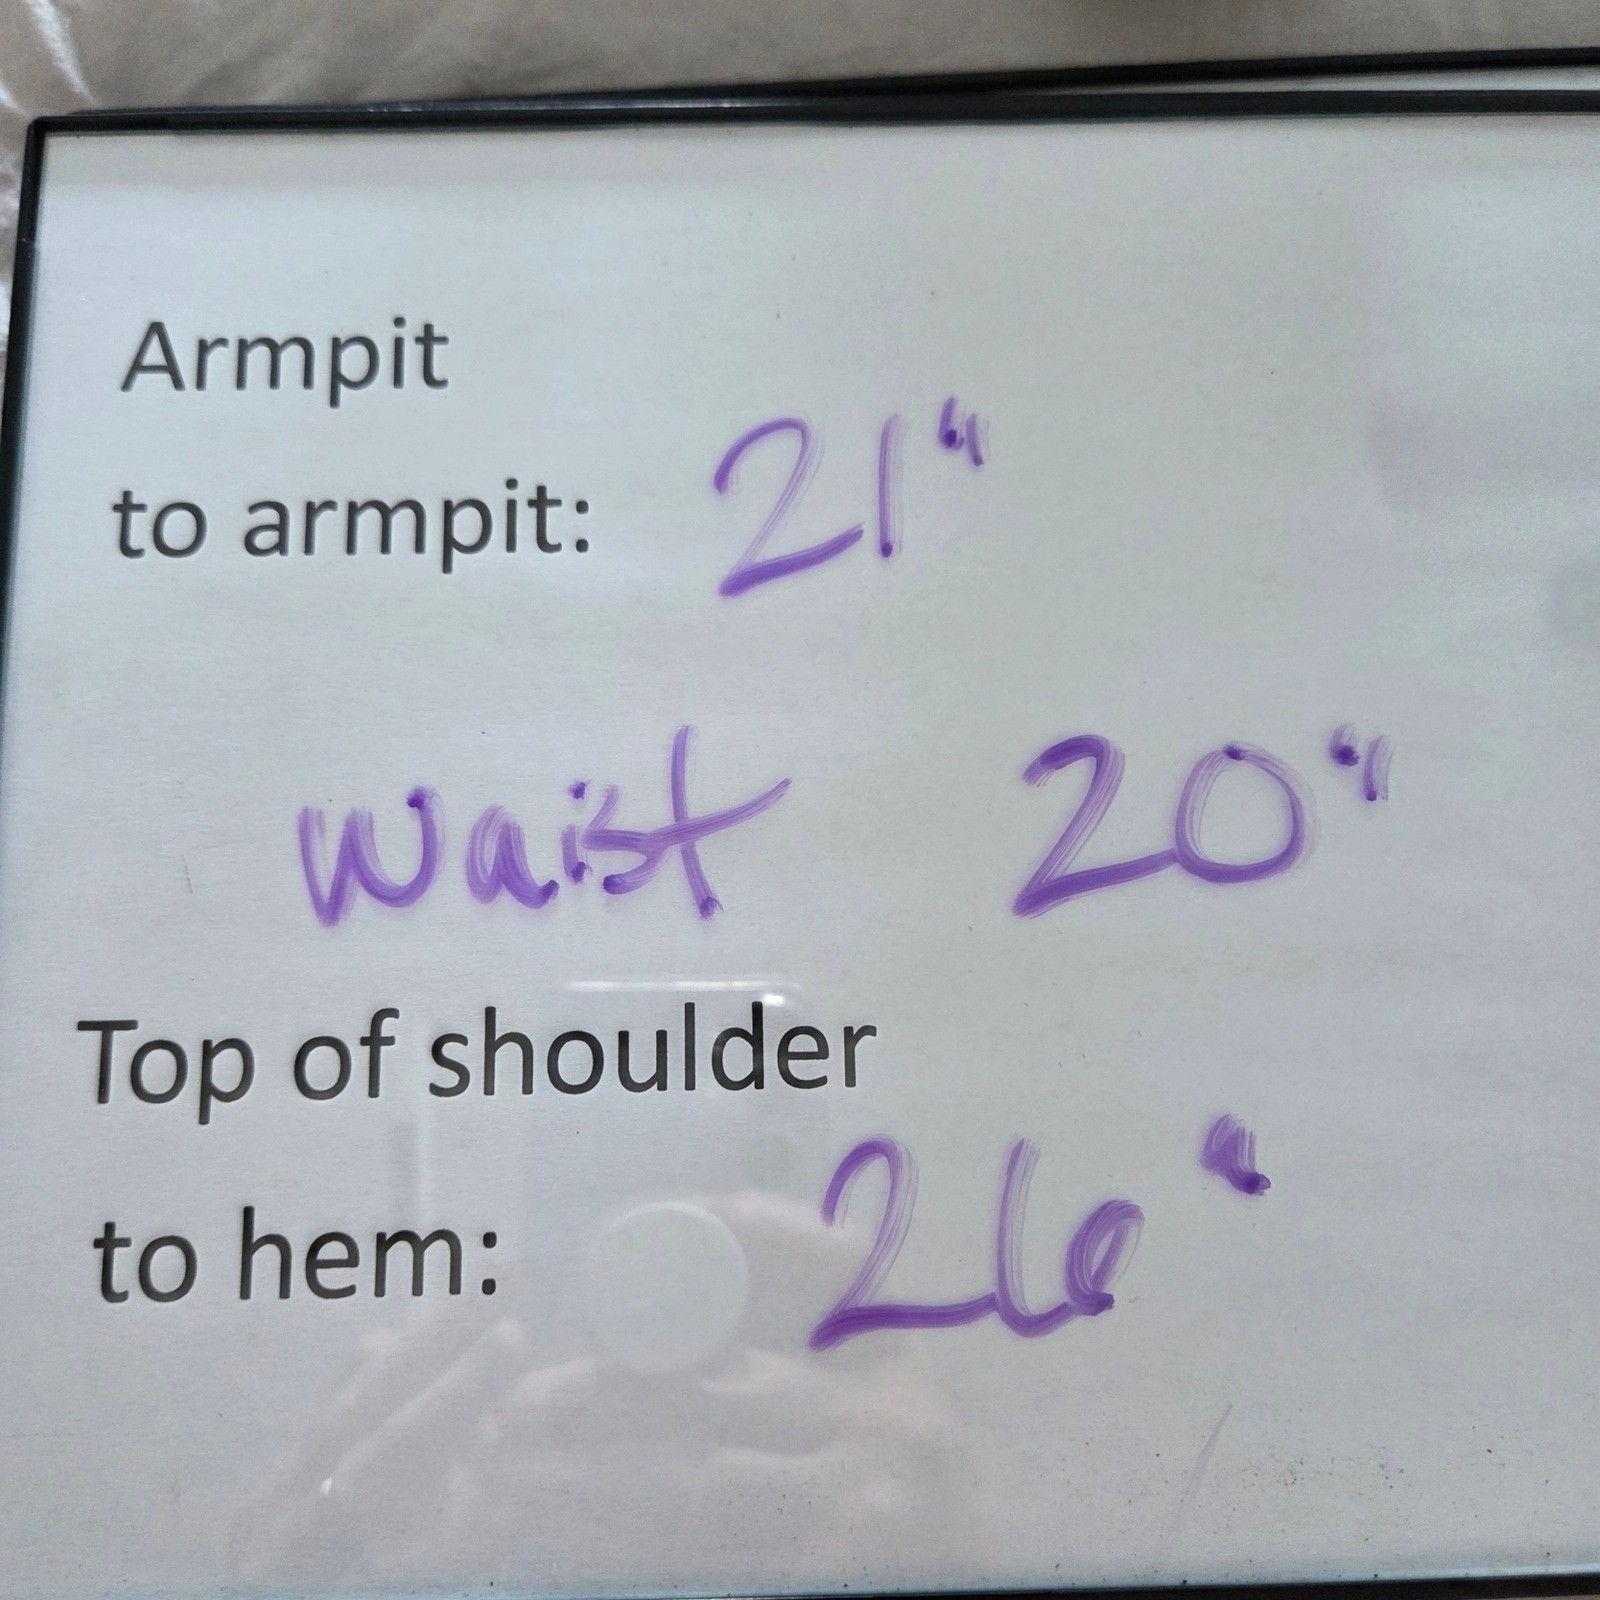 Armpit
to armpit: 21"
Waist 20"
Top of shoulder
to hem: 26"